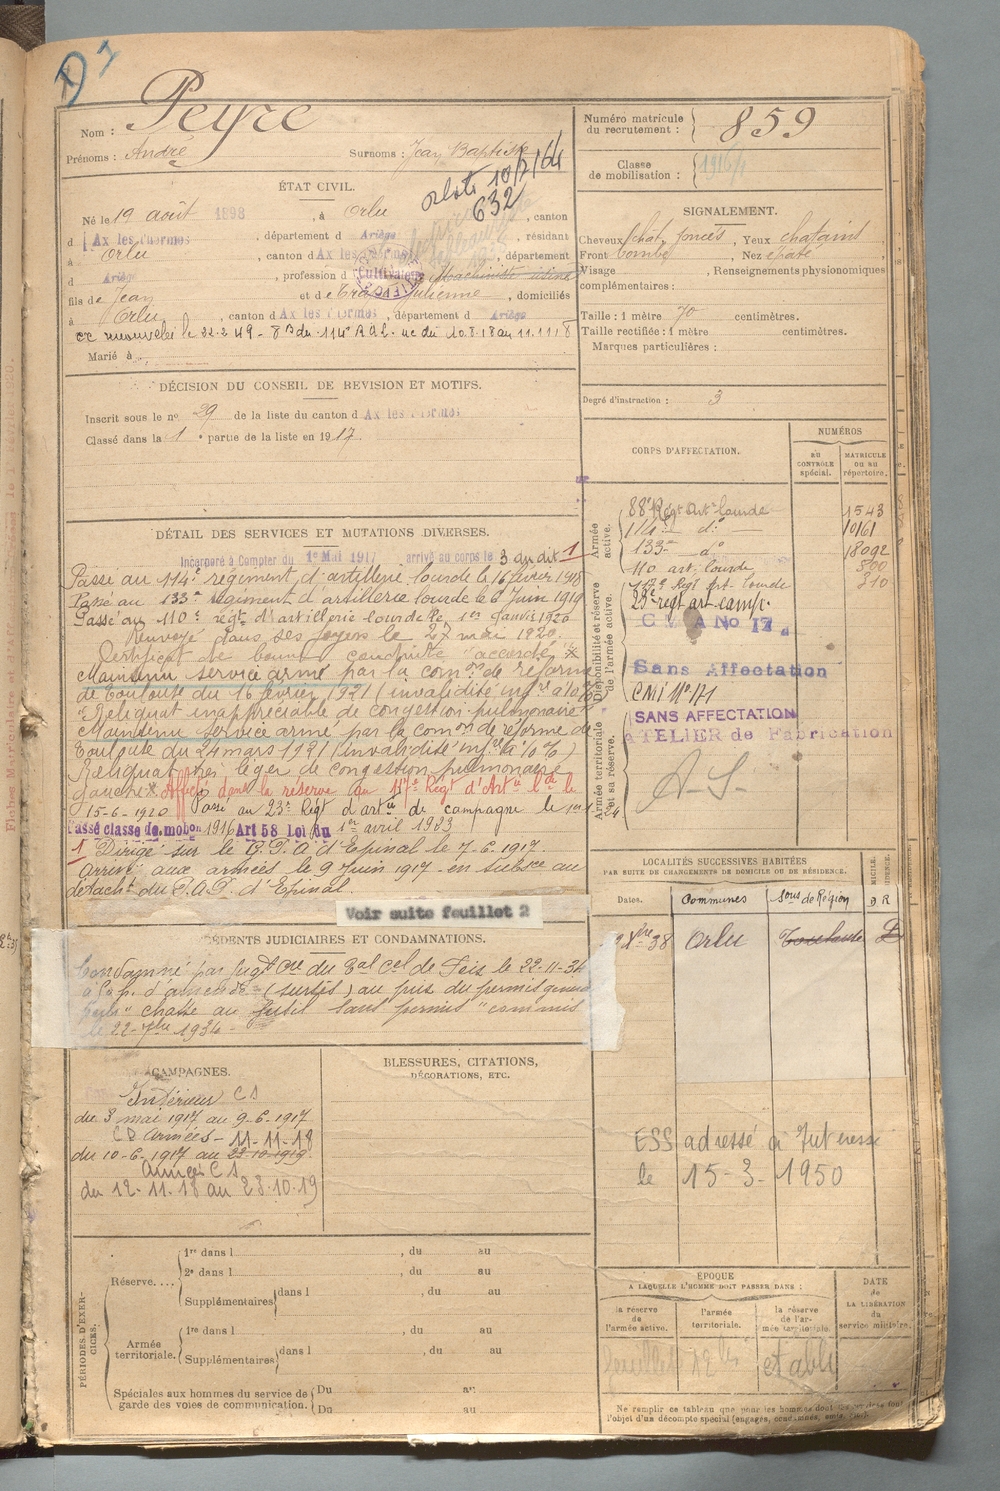 D 1
Nom : Peyre
Numéro matricule du recrutement : 859
Prénoms : André Surnoms : Jean Baptiste
Classe de mobilisation : 1916
10/7/64
632
ÉTAT CIVIL.
Né le 19 août 1898, à Orlu, canton
d Ax les Thermes, département d Ariège, résidant
à Orlu, canton d Ax les Thermes, département
d Ariège, profession d Cultivateur
fils de Jean et de Julienne, domiciliés
à Orlu, canton d Ax les Thermes, département d Ariège
cc renouvelée le 22-2-49 - 8e B du 114e RAL. uc du 20.8.18 au 11.11.18
Marié à
SIGNALEMENT.
Cheveux chat. foncés, Yeux chatains
Front bombé, Nez épaté
Visage , Renseignements physionomiques
complémentaires :
Taille : 1 mètre 70 centimètres.
Taille rectifiée : 1 mètre centimètres.
Marques particulières :
Degré d'instruction : 3
DÉCISION DU CONSEIL DE REVISION ET MOTIFS.
Inscrit sous le no 29 de la liste du canton d Ax les Thermes
Classé dans la 1e partie de la liste en 1917.
CORPS D'AFFECTATION.
NUMÉROS
AU CONTRÔLE spécial.
MATRICULE OU AU répertoire.
Armée active.
88e Régt Art. lourde 1543
114e do 10161
133e do 18092
110 art. lourde 300
117e Régt Art. lourde 310
Disponibilité et réserve de l'armée active.
23e regt art camp.
C M A No 17
Sans Affectation
CMI No 171
Armée territoriale et sa réserve.
SANS AFFECTATION
ATELIER de Fabrication
A-S-
DÉTAIL DES SERVICES ET MUTATIONS DIVERSES.
Incorporé à Compter du 1er Mai 1917 arrivé au corps le 3 au dit 1
Passé au 114e régiment d'artillerie lourde le 16 février 1918
Passé au 133e régiment d'artillerie lourde le 6 Juin 1919
Passé au 110e régt d'artillerie lourde le 1er Janvier 1920
Renvoyé dans ses foyers le 27 mai 1920.
Certificat de bonne conduite "accordé"
Maintenu service armé par la comon de réforme
de Toulouse du 16 février 1921 (invalidité infre à 10%)
Reliquat inappréciable de congestion pulmonaire
Maintenu service armé par la comon de réforme de
Toulouse du 24 mars 1921 (invalidité infre à 10%)
Reliquat très léger de congestion pulmonaire
gauche Affecté dans la réserve au 117e Régt d'Artie lde le
15-6-1920 Passé au 23e Régt d'artie de campagne le 1er-1-24
Passé classe de mobon 1916 Art 58 Loi du 1er avril 1923
1 Dirigé sur le C.P.A d'Epinal le 7-6-1917.
Arrivé aux armées le 9 Juin 1917 en subsce au
détacht du P.A.D. d'Epinal.
Voir suite feuillet 2
LOCALITÉS SUCCESSIVES HABITÉES
PAR SUITE DE CHANGEMENTS DE DOMICILE OU DE RÉSIDENCE.
Dates. Communes Sous de Région D R
Xbre 38 Orlu Toulouse D
ESS adressé à l'Interessé
le 15-3-1950
ANTÉCÉDENTS JUDICIAIRES ET CONDAMNATIONS.
Condamné par jugt cre du Bal cel de Foix le 22-11-34
d'amende (sursis) au prix du permis general
chasse au fusil sans permis "commis
le 22-7bre 1934-
CAMPAGNES.
Intérieur CS
du 3 mai 1917 au 9-6-1917
CD Armées - 11-11-18
du 10-6-1917 au 22-10-1919
Armées CS
du 12-11-18 au 23-10-19
BLESSURES, CITATIONS,
DÉCORATIONS, ETC.
PÉRIODES D'EXERCICES.
Réserve....
1re dans l , du au
2e dans l , du au
Supplémentaires dans l , du au
Armée territoriale.
1re dans l , du au
Supplémentaires dans l , du au
Spéciales aux hommes du service de garde des voies de communication.
Du au
Du au
ÉPOQUE
A LAQUELLE L'HOMME DOIT PASSER DANS :
la réserve de l'armée active.
l'armée territoriale.
la réserve de l'armée territoriale.
DATE de LA LIBÉRATION du service militaire.
feuillet établi
Ne remplir ce tableau que pour les hommes dont
l'objet d'un décompte spécial (engagés, condamnés, omis,